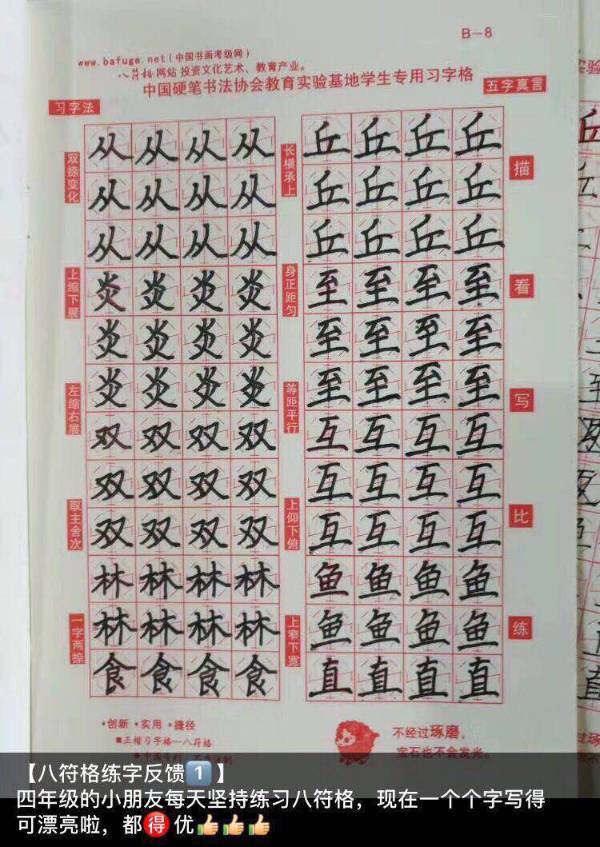 B-8
www.bafuge.net(中国书画考级网)
八符格网站 投资文化艺术、教育产业。
中国硬笔书法协会教育实验基地学生专用习字格
五字真言
习字法
双捺变化
从从从从
从从从从
从从从从
上缩下展
炎炎炎炎
炎炎炎炎
炎炎炎炎
左缩右展
双双双双
双双双双
双双双双
取主舍次
林林林林
林林林林
一字两捺
食食食食
长横承上
丘丘丘丘
丘丘丘丘
丘丘丘丘
身正距匀
至至至至
至至至至
至至至至
等距平行
互互互互
互互互互
互互互互
上仰下俯
鱼鱼鱼鱼
鱼鱼鱼鱼
上窄下宽
直直直直
描
看
写
比
练
·创新 ·实用 ·捷径
■正楷习字格—八符格
不经过琢磨,
宝石也不会发光。
【八符格练字反馈1️⃣】
四年级的小朋友每天坚持练习八符格，现在一个个字写得
可漂亮啦，都🉐优👍👍👍